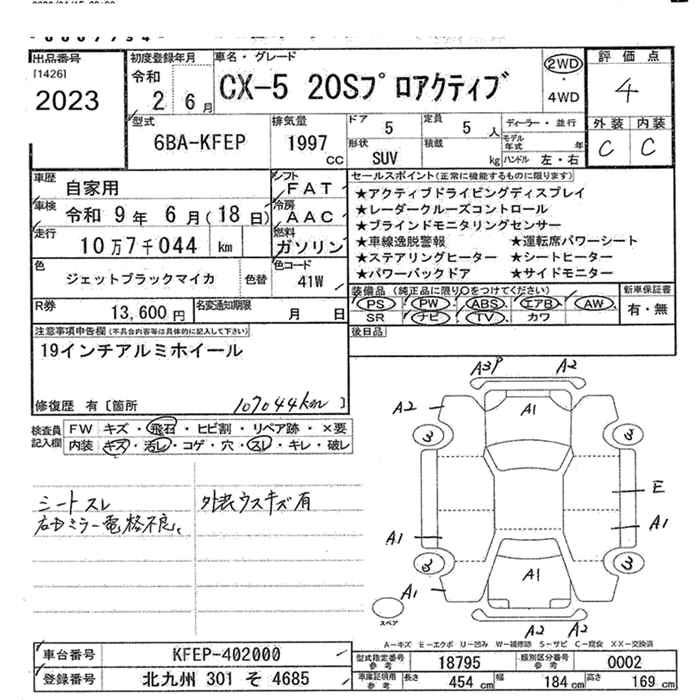 出品番号
[1426]
2023
初度登録年月
令和
2 6月
車名・グレード
CX-5 20Sプロアクティブ
2WD
・
4WD
評価点
4
外装 内装
C C
型式
6BA-KFEP
排気量
1997
CC
ドア
5
定員
5 人
形状
SUV
積載
kg
ディーラー・並行
モデル年式 年
ハンドル 左・右
車歴
自家用
シフト
FAT
車検
令和 9年 6月(18日)
冷房
AAC
走行
10万7千044 km
燃料
ガソリン
色
ジェットブラックマイカ
色替
色コード
41W
R券
13,600円
名変通知期限
月 日
セールスポイント(正常に機能するものに限ります)
★アクティブドライビングディスプレイ
★レーダークルーズコントロール
★ブラインドモニタリングセンサー
★車線逸脱警報 ★運転席パワーシート
★ステアリングヒーター ★シートヒーター
★パワーバックドア ★サイドモニター
装備品(純正品に限り○をつけてください)
PS・PW・ABS・エアB・AW
SR ナビ・TV・カワ
新車保証書
有・無
後日品
注意事項申告欄(不具合内容等は具体的に記入して下さい)
19インチアルミホイール
修復歴 有[箇所 107044km ]
検査員
記入欄
FW キズ・飛石・ヒビ割・リペア跡・×要
内装 キズ・汚レ・コゲ・穴・スレ・キレ・破レ
シートスレ
右ミラー電格不良、
外装ウスキズ有
A3P A2
A2 A1 A2
3 3
E
A1 A1
3 3
A1 A1
A2 A2
スペア
A-キズ E-エクボ U-凹み W-補修跡 S-サビ C-腐食 XX-交換済
車台番号
KFEP-402000
登録番号
北九州 301 そ 4685
型式指定番号
参考
18795
類別区分番号
参考
0002
車庫証明用
参考
長さ
454 cm
幅
184 cm
高さ
169 cm